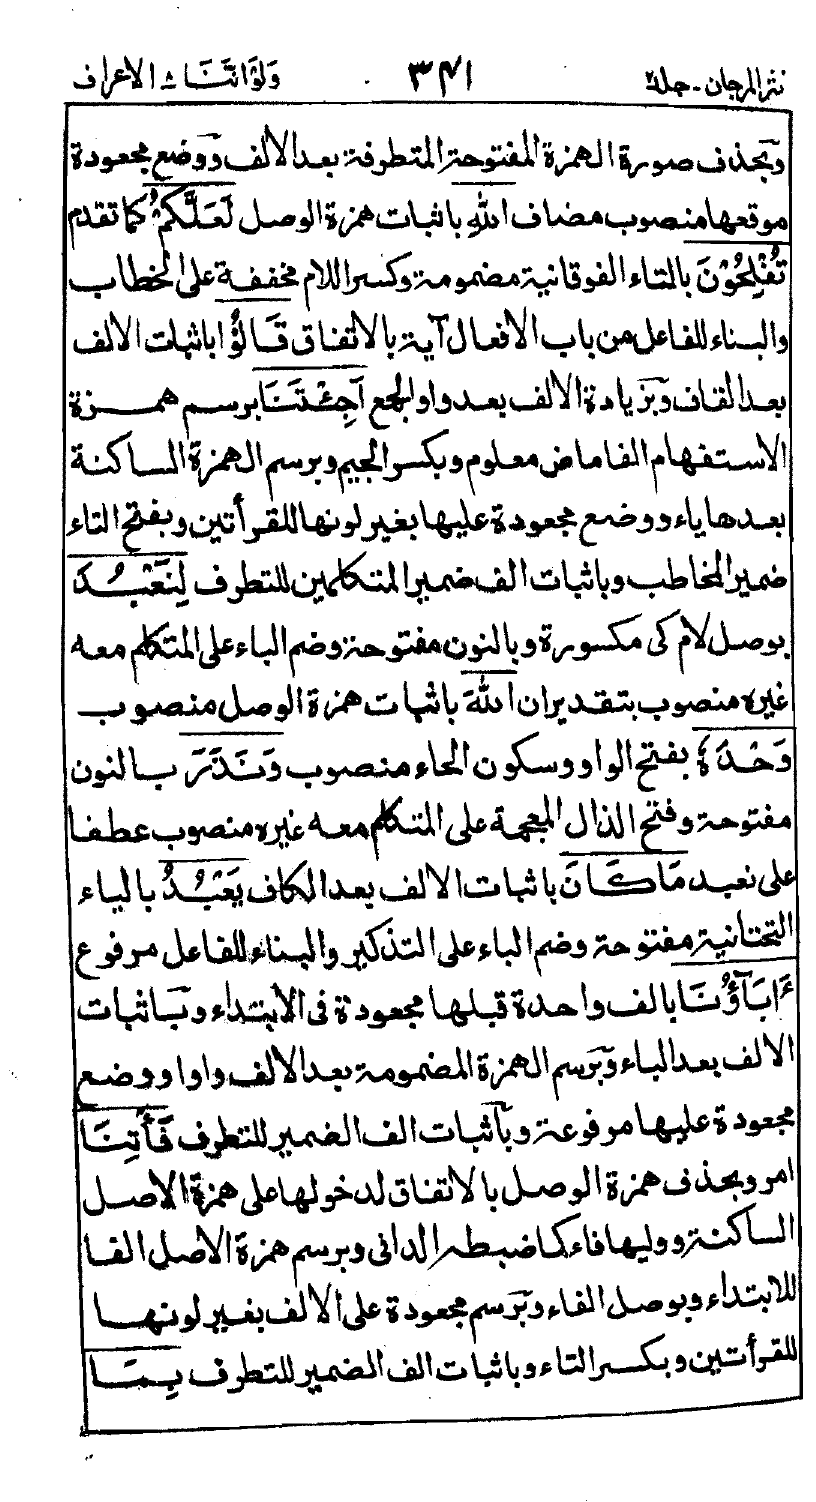 نثر المرجان - جلد ٢ ٣٤١ ولو اننا ٨ الاعراف
وبحذف صورة الهمزة المفتوحة المتطرفة بعد الالف ووضع مجعودة
موقعها منصوب مضاف اللهِ باثبات همزة الوصل لَعَلَّكُمْ كما تقدم
تُفْلِحُوْنَ بالتاء الفوقانية مضمومة وكسر اللام مخففة على الخطاب
والبناء للفاعل من باب الافعال آية بالاتفاق قَالُوْا باثبات الالف
بعد القاف وبزيادة الالف بعد واو الجمع اَجِئْتَنَا برسم همزة
الاستفهام الفا ماض معلوم وبكسر الجيم وبرسم الهمزة الساكنة
بعدها ياء ووضع مجعودة عليها بغير لونها للقرأتين وبفتح التاء
ضمير المخاطب وباثبات الف ضمير المتكلمين للتطرف لِنَعْبُدَ
بوصل لام كى مكسورة وبالنون مفتوحة وضم الباء على المتكلم معه
غيره منصوب بتقدير ان اللهَ باثبات همزة الوصل منصوب
وَحْدَهٗ بفتح الواو وسكون الحاء منصوب وَنَذَرَ بالنون
مفتوحة وفتح الذال المعجمة على المتكلم معه غيره منصوب عطفا
على نعبد مَا كَانَ باثبات الالف بعد الكاف يَعْبُدُ بالياء
التحتانية مفتوحة وضم الباء على التذكير والبناء للفاعل مرفوع
ءَابَآؤُنَا بالف واحدة قبلها مجعودة فى الابتداء وباثبات
الالف بعد الباء وبرسم الهمزة المضمومة بعد الالف واوا ووضع
مجعودة عليها مرفوعة وباثبات الف الضمير للتطرف فَأْتِنَا
امر وبحذف همزة الوصل بالاتفاق لدخولها على همزة الاصل
الساكنة ووليها فاء كما ضبطه الدانى وبرسم همزة الاصل الفا
للابتداء وبوصل الفاء وبرسم مجعودة على الالف بغير لونها
للقرأتين وبكسر التاء وباثبات الف الضمير للتطرف بِمَا